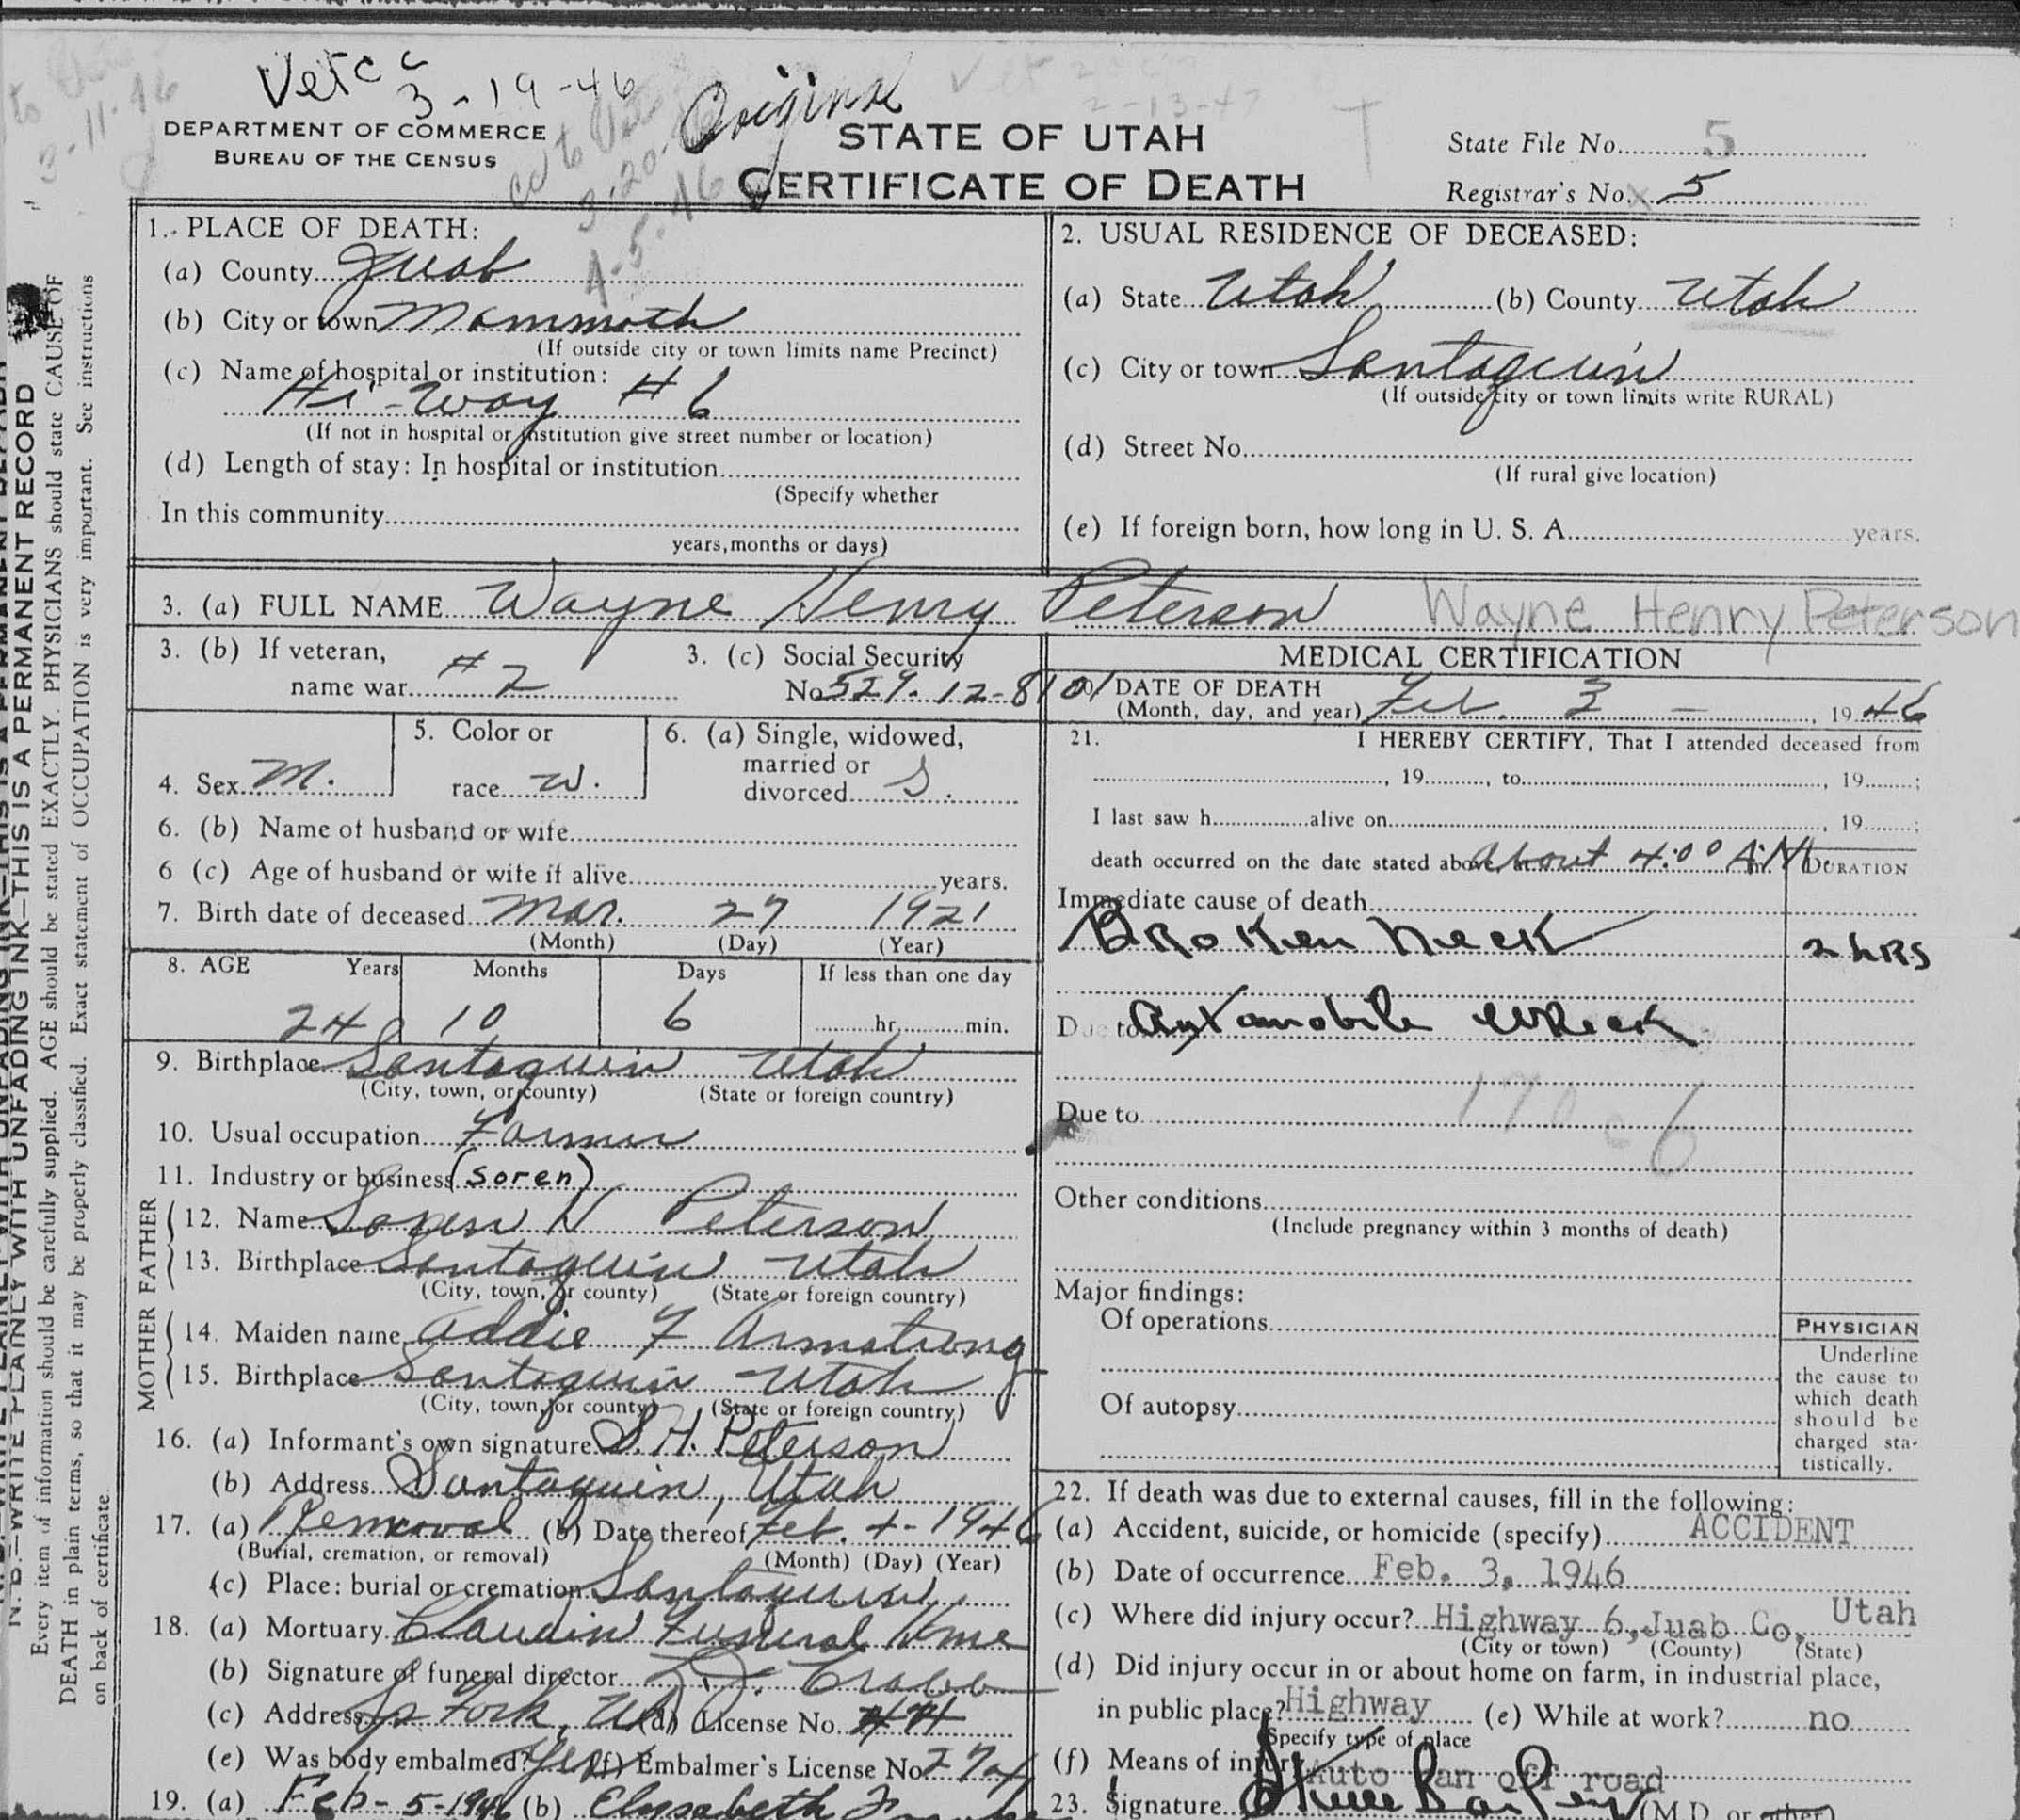 Vet c c
3-19-46
Original
3-11-46
2-13-47
DEPARTMENT OF COMMERCE
BUREAU OF THE CENSUS
cc to Vets
3-20-
4-5-46
STATE OF UTAH
CERTIFICATE OF DEATH
State File No. 5
Registrar's No. 5
1. PLACE OF DEATH:
(a) County Juab
(b) City or town Mammoth
(If outside city or town limits name Precinct)
(c) Name of hospital or institution:
Hi-Way #6
(If not in hospital or institution give street number or location)
(d) Length of stay: In hospital or institution
(Specify whether
In this community
years, months or days)
2. USUAL RESIDENCE OF DECEASED:
(a) State Utah (b) County Utah
(c) City or town Santaquin
(If outside city or town limits write RURAL)
(d) Street No.
(If rural give location)
(e) If foreign born, how long in U. S. A. years.
3. (a) FULL NAME Wayne Henry Peterson Wayne Henry Peterson
3. (b) If veteran,
name war #2
3. (c) Social Security
No. 529-12-8101
4. Sex M.
5. Color or
race W.
6. (a) Single, widowed,
married or
divorced S.
6. (b) Name of husband or wife
6 (c) Age of husband or wife if alive years.
7. Birth date of deceased Mar. 27 1921
(Month) (Day) (Year)
8. AGE Years Months Days If less than one day
24 10 6 hr. min.
9. Birthplace Santaquin Utah
(City, town, or county) (State or foreign country)
10. Usual occupation Farmer
11. Industry or business (Soren)
FATHER
12. Name Soren H Peterson
13. Birthplace Santaquin Utah
(City, town, or county) (State or foreign country)
MOTHER
14. Maiden name Addie F Armstrong
15. Birthplace Santaquin Utah
(City, town, or county) (State or foreign country)
16. (a) Informant's own signature S. H. Peterson
(b) Address Santaquin, Utah
17. (a) Removal (b) Date thereof Feb. 4-1946
(Burial, cremation, or removal) (Month) (Day) (Year)
(c) Place: burial or cremation Santaquin
18. (a) Mortuary Claudin Funeral Home
(b) Signature of funeral director
(c) Address Sp Fork, Ut (d) License No. 44
(e) Was body embalmed? Yes (f) Embalmer's License No.
19. (a) Feb-5-1946 (b) Elizabeth
MEDICAL CERTIFICATION
20. DATE OF DEATH
(Month, day, and year) Feb 3 - , 1946
21. I HEREBY CERTIFY, That I attended deceased from
, 19 , to , 19 ;
I last saw h alive on , 19 ;
death occurred on the date stated above, at about 4:00 A.M.
DURATION
Immediate cause of death
Broken Neck 2 hrs
Due to Automobile Wreck
Due to
Other conditions
(Include pregnancy within 3 months of death)
Major findings:
Of operations
Of autopsy
PHYSICIAN
Underline
the cause to
which death
should be
charged sta-
tistically.
22. If death was due to external causes, fill in the following:
(a) Accident, suicide, or homicide (specify) ACCIDENT
(b) Date of occurrence Feb. 3, 1946
(c) Where did injury occur? Highway 6, Juab Co, Utah
(City or town) (County) (State)
(d) Did injury occur in or about home on farm, in industrial place,
in public place? Highway (e) While at work? no
Specify type of place
(f) Means of injury Auto ran off road
23. Signature Steele Bailey (M.D. or other)
N. B.—WRITE PLAINLY WITH UNFADING INK—THIS IS A PERMANENT RECORD
Every item of information should be carefully supplied. AGE should be stated EXACTLY. PHYSICIANS should state CAUSE OF
DEATH in plain terms, so that it may be properly classified. Exact statement of OCCUPATION is very important. See instructions
on back of certificate.